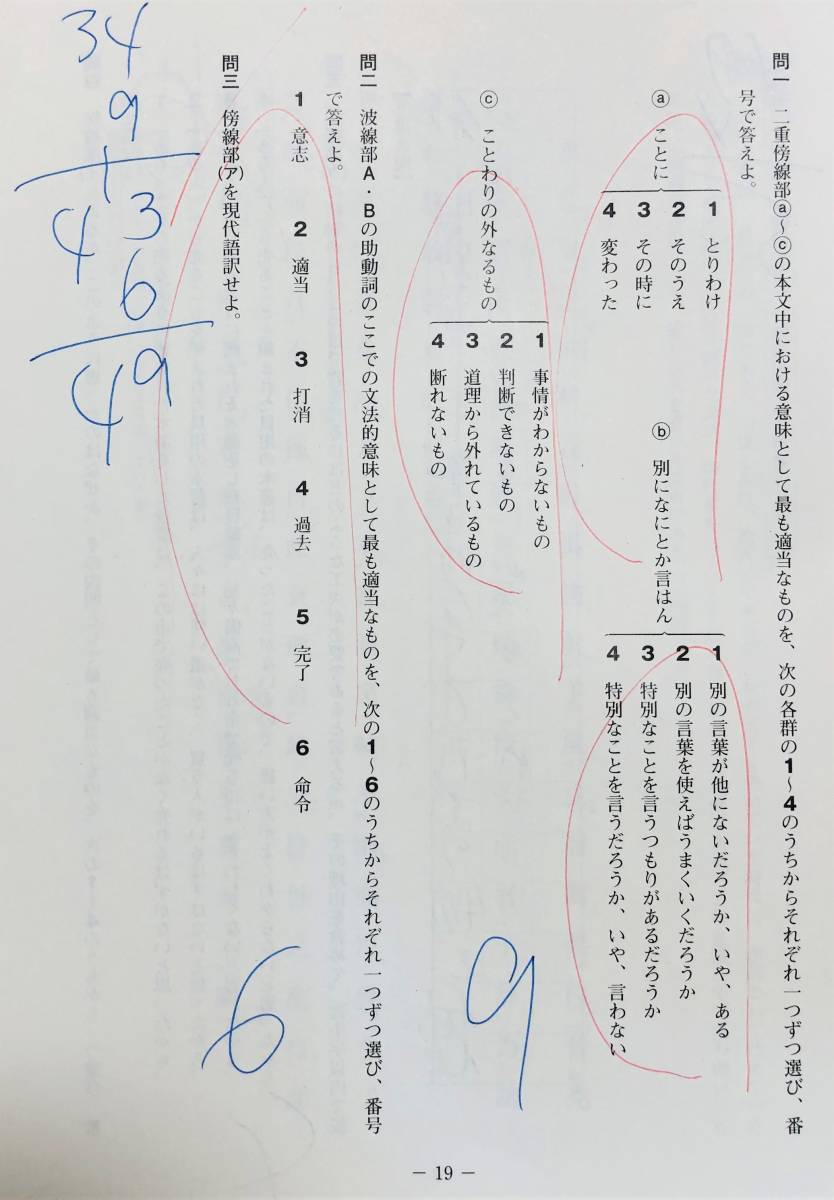 問一　二重傍線部ⓐ～ⓒの本文中における意味として最も適当なものを、次の各群の1～4のうちからそれぞれ一つずつ選び、番
号で答えよ。
ⓐ　ことに
1　とりわけ
2　そのうえ
3　その時に
4　変わった
ⓑ　別になにとか言はん
1　別の言葉が他にないだろうか、いや、ある
2　別の言葉を使えばうまくいくだろうか
3　特別なことを言うつもりがあるだろうか
4　特別なことを言うだろうか、いや、言わない
ⓒ　ことわりの外なるもの
1　事情がわからないもの
2　判断できないもの
3　道理から外れているもの
4　断れないもの
9
問二　波線部A・Bの助動詞のここでの文法的意味として最も適当なものを、次の1～6のうちからそれぞれ一つずつ選び、番号
で答えよ。
1　意志　2　適当　3　打消　4　過去　5　完了　6　命令
6
問三　傍線部(ア)を現代語訳せよ。
34
9
43
6
49
— 19 —